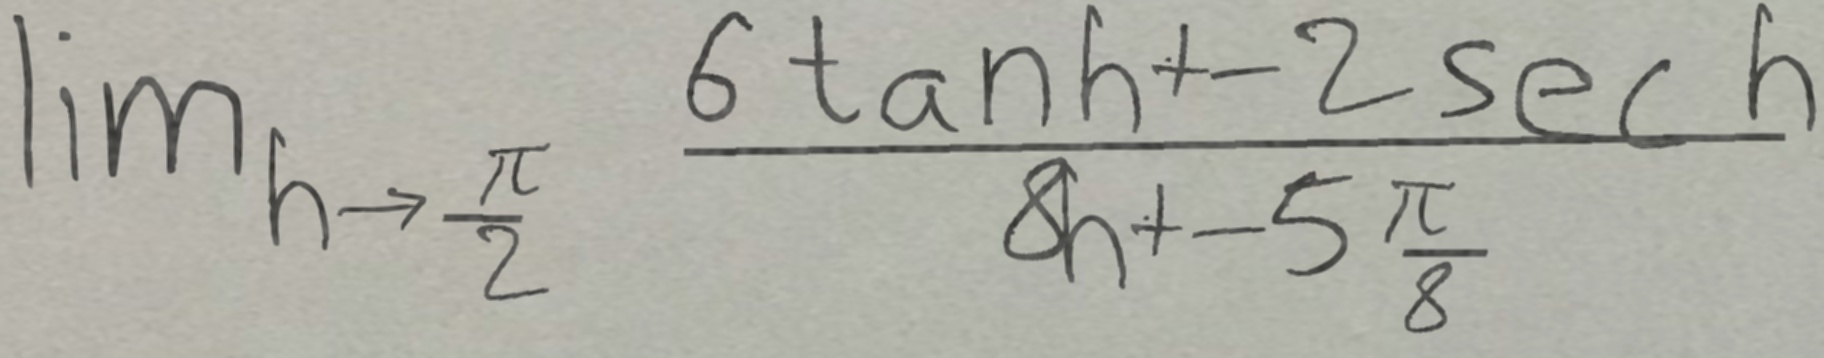 \lim_{h \to \frac{\pi}{2}} \frac{6 \tan h + -2 \sec h}{8h + -5 \frac{\pi}{8}}